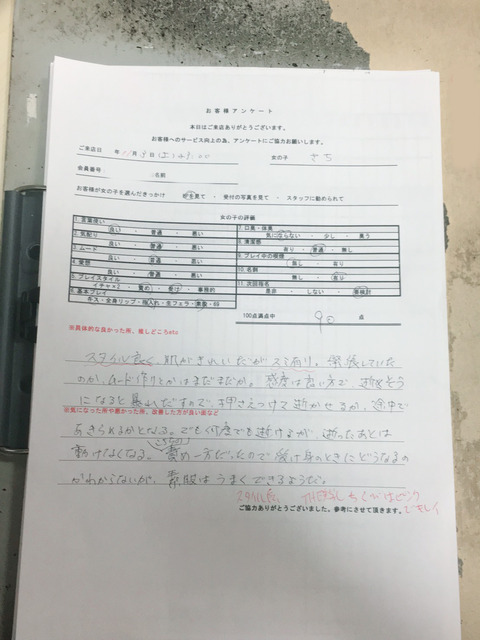 お客様アンケート
本日はご来店ありがとうございます。
お客様へのサービス向上の為、アンケートにご協力お願いします。
ご来店日 年 11月 9日 女の子 さち
会員番号 名前
お客様が女の子を選んだきっかけ HPを見て ・ 受付の写真を見て ・ スタッフに勧められて
女の子の評価
1. 言葉使い
良い ・ 普通 ・ 悪い
2. 気配り
良い ・ 普通 ・ 悪い
3. ムード
良い ・ 普通 ・ 悪い
4. 愛想
良い ・ 普通 ・ 悪い
5. プレイスタイル
イチャ×2 ・ 責め ・ 受け ・ 事務的
6. 基本プレイ
キス・全身リップ・指入れ・生フェラ・素股・69
7. 口臭・体臭
気にならない ・ 少し ・ 臭う
8. 清潔感
有り ・ 普通 ・ 無し
9. プレイ中の喫煙
無し ・ 有り
10. 名刺
無し ・ 有り
11. 次回指名
是非 ・ しない ・ 要検討
100点満点中 90 点
※具体的な良かった所、推しどころetc
スタイル良く、肌がきれいだがスミ有り。緊張していた
のか、ムード作りとかはまだまだか。感度は良い方で、逝きそう
になると暴れだすので、押さえつけて逝かせるか、途中で
※気になった所や悪かった所、改善した方が良い面など
あきらめるかとなる。でも何度でも逝けるが、逝ったあとは
動けなくなる。責め一方だったので受け身のときにどうなるの
かわからないが、素股はうまくできるようだ。
スタイル良、 ちくびはピンク
でキレイ
ご協力ありがとうございました。参考にさせて頂きます。